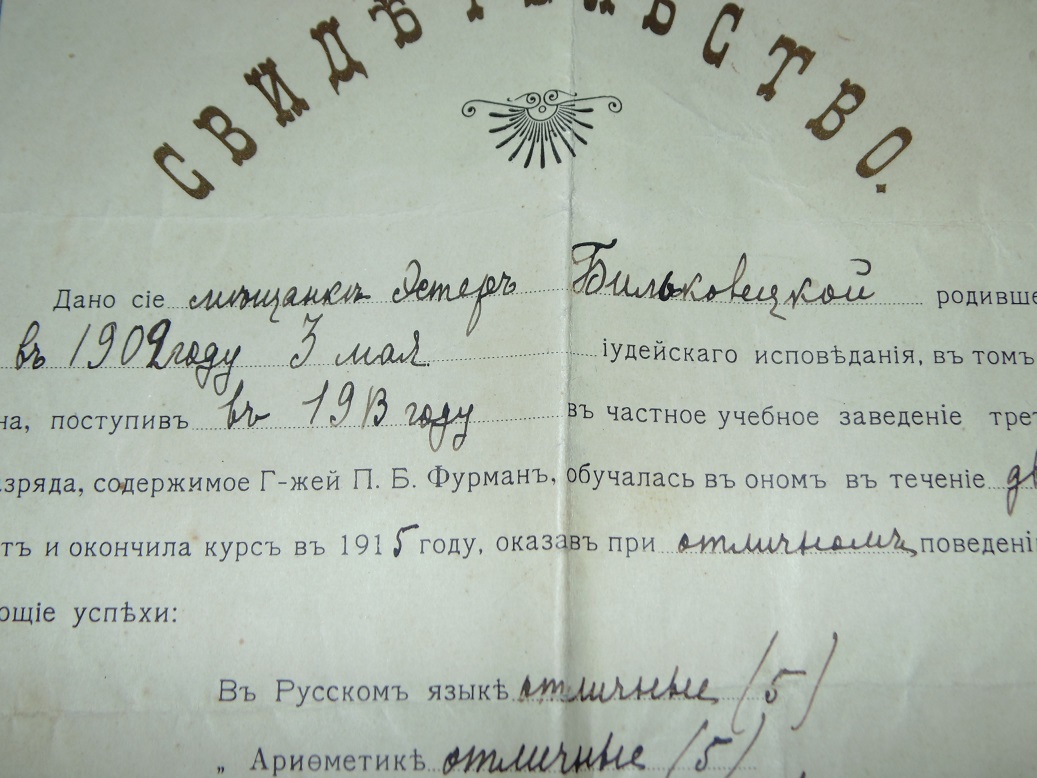 СВИДѢТЕЛЬСТВО.
Дано сіе мѣщанкѣ Эстеръ Бильковецкой родивше
въ 1902 году 3 мая іудейскаго исповѣданія, въ томъ
на, поступивъ въ 1913 году въ частное учебное заведеніе трет
азряда, содержимое Г-жей П. Б. Фурманъ, обучалась въ ономъ въ теченіе дв
тъ и окончила курсъ въ 1915 году, оказавъ при отличномъ поведені
ющіе успѣхи:
Въ Русскомъ языкѣ отличные (5)
„ Ариѳметикѣ отличные (5)